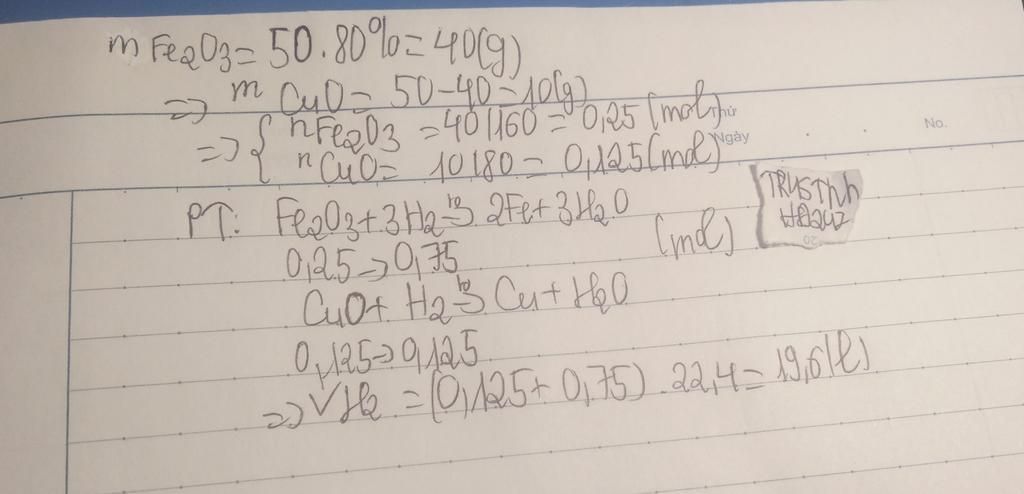 mFe2O3 = 50.80% = 40(g)
=> mCuO = 50-40 = 10(g)
=> { nFe2O3 = 40/160 = 0,25 (mol)
nCuO = 10/80 = 0,125 (mol)
Thứ
Ngày
No.
PT: Fe2O3 + 3H2 to→ 2Fe + 3H2O
(mol)
0,25 → 0,75
CuO + H2 to→ Cu + H2O
0,125 → 0,125
=> VH2 = (0,125 + 0,75) . 22,4 = 19,6 (l)
20